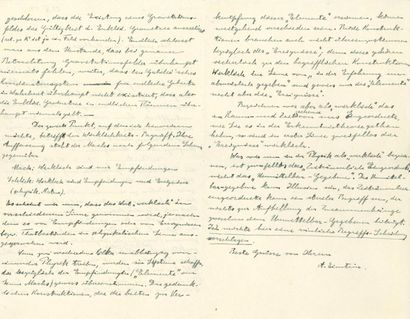 geschlossen, dass die Existenz eines Gravitations-
feldes die Gültigkeit der Euklid. Geometrie ausschliesst
im Feld vorhanden). Endlich schliesst
man aus dem Umstande, dass bei genauer
Betrachtung Gravitationsfelder überhaupt
niemals fehlen, dass das Gebiet solcher
Koordinatensysteme für endliche Gebiete
in Wahrheit überhaupt nicht existiert, dass also
die Euklid. Geometrie in endlichen Räumen über-
haupt niemals gilt.
Der zweite Punkt, auf den ich hinweisen
möchte, betrifft den Wirklichkeits-Begriff. Ihre
Auffassung steht der Machs nach folgendem Schema
gegenüber:
Mach: Wirklich sind nur Empfindungen
Schlick: Wirklich sind Empfindungen und Ereignisse
(physik. Natur).
Es scheint mir nun, dass das Wort „wirklich“ in
verschiedenem Sinne genommen wird, je nachdem
es von Empfindungen oder von Ereignissen
bezw. Thatbeständen im physikalischen Sinne aus-
gesprochen wird.
Wenn zwei verschiedene Völker unabhängig von-
einander Physik treiben, werden sie Systeme schaffen,
die bezüglich der Empfindungen („Elemente“ im
Sinne Machs) gewiss übereinstimmen. Die gedank-
lichen Konstruktionen, die die beiden zur Ver-
knüpfung dieser „Elemente“ ersinnen, können
weitgehend verschieden sein. Beide Konstruk-
tionen brauchen auch nicht übereinzustimmen
bezüglich der „Ereignisse“; denn diese gehören
sicherlich zu den begrifflichen Konstruktionen.
Wirklich im Sinne von „in der Erfahrung un-
abweislich gegeben“ sind gewiss nur die „Elemente“
nicht aber die „Ereignisse“.
Bezeichnen wir aber als „wirklich“ das
in Raum und Zeit-Schema Angeordnete,
wie Sie es in der Erkenntnistheorie gethan
haben, so sind in erster Linie zweifellos die
„Ereignisse“ wirklich.
Was wir nun in der Physik als „wirklich“ bezeich-
nen, ist zweifellos das „Zeiträumlich-Angeordnete“,
nicht das „Unmittelbar-Gegebene“. Das Unmittel-
bargegebene kann Illusion sein, das Zeiträumlich-
angeordnete kann ein steriler Begriff sein, der
nichts zur Aufhellung der Zusammenhänge
zwischen dem Unmittelbar-Gegebenen beiträgt.
Ich möchte hier eine reinliche Begriffs-Scheidung
vorschlagen.
Beste Grüsse von Ihrem
A. Einstein.